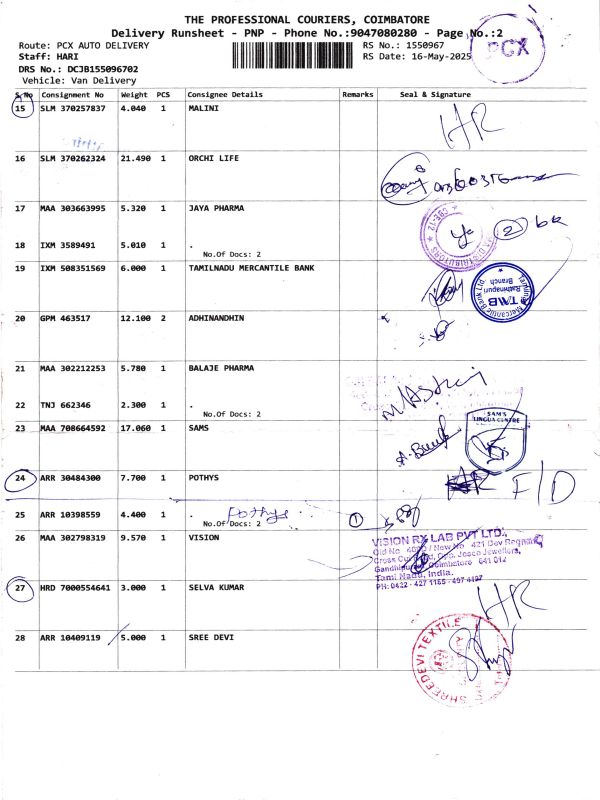 THE PROFESSIONAL COURIERS, COIMBATORE
Delivery Runsheet - PNP - Phone No.:9047080280 - Page No.:2
PCX
Route: PCX AUTO DELIVERY
RS No.: 1550967
Staff: HARI
RS Date: 16-May-2025
DRS No.: DCJB155096702
Vehicle: Van Delivery
S.No Consignment No Weight PCS Consignee Details Remarks Seal & Signature
15 SLM 370257837 4.040 1 MALINI
HR
16 SLM 370262324 21.490 1 ORCHI LIFE
17 MAA 303663995 5.320 1 JAYA PHARMA
CBE-12
2
18 IXM 3589491 5.010 1 .
No.Of Docs: 2
19 IXM 508351569 6.000 1 TAMILNADU MERCANTILE BANK
Tamilnad Mercantile Bank Ltd.
TMB
Rathinapuri
Branch
20 GPM 463517 12.100 2 ADHINANDHIN
21 MAA 302212253 5.780 1 BALAJE PHARMA
22 TNJ 662346 2.300 1 .
No.Of Docs: 2
23 MAA 708664592 17.060 1 SAMS
SAM'S
LINGUA CENTRE
24 ARR 30484300 7.700 1 POTHYS
F/D
25 ARR 10398559 4.400 1 . Pothys
No.Of Docs: 2
1
26 MAA 302798319 9.570 1 VISION
VISION RX LAB PVT LTD.,
Tamil Nadu, India.
PH: 0422 - 427 1165 - 497 4197
27 HRD 7000554641 3.000 1 SELVA KUMAR
HR
28 ARR 10409119 5.000 1 SREE DEVI
SHREEDEVI TEXTILE